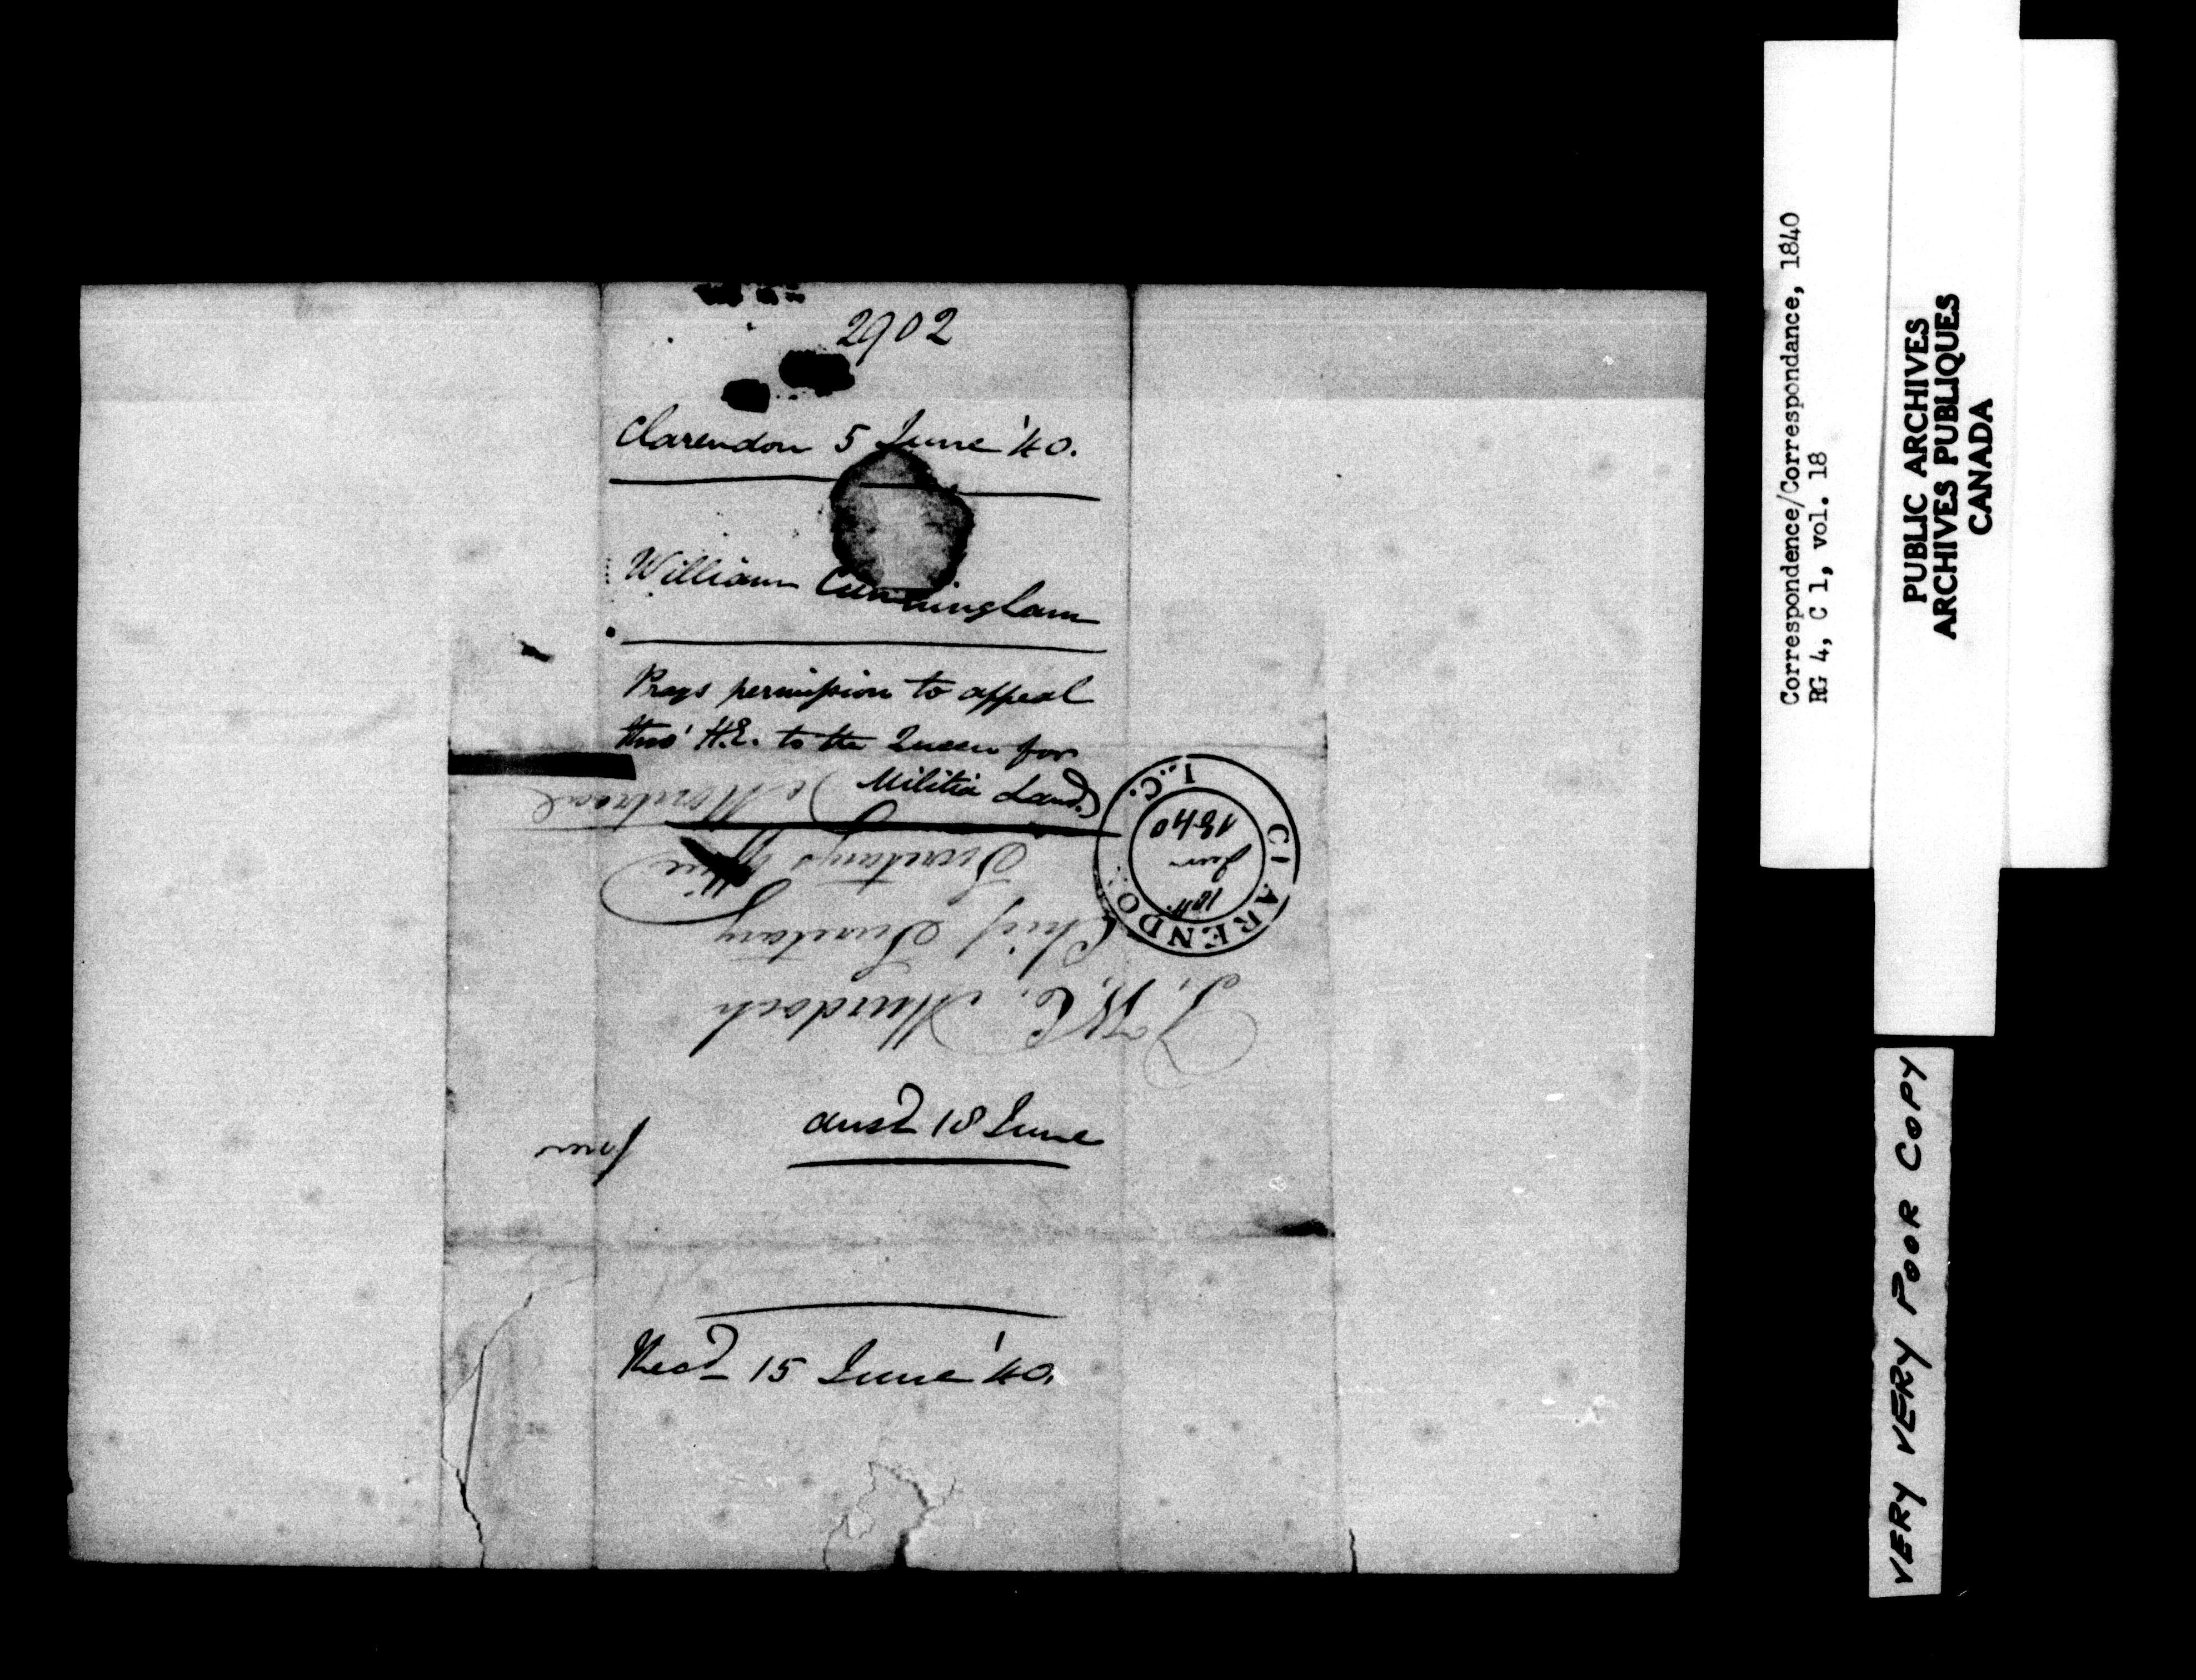 2902
Clarendon 5 June '40.
William Cunningham
Prays permission to appeal
thro' H.E. to the Queen for
Militia Land.
ansd 18 June
Recd 15 June '40.
T. W. C. Murdoch
Chief Secretary
Secretary's Office
Montreal
CLARENDON L.C.
10th
June
1840
Correspondence/Correspondance, 1840
RG 4, C 1, vol. 18
PUBLIC ARCHIVES
ARCHIVES PUBLIQUES
CANADA
VERY VERY POOR COPY